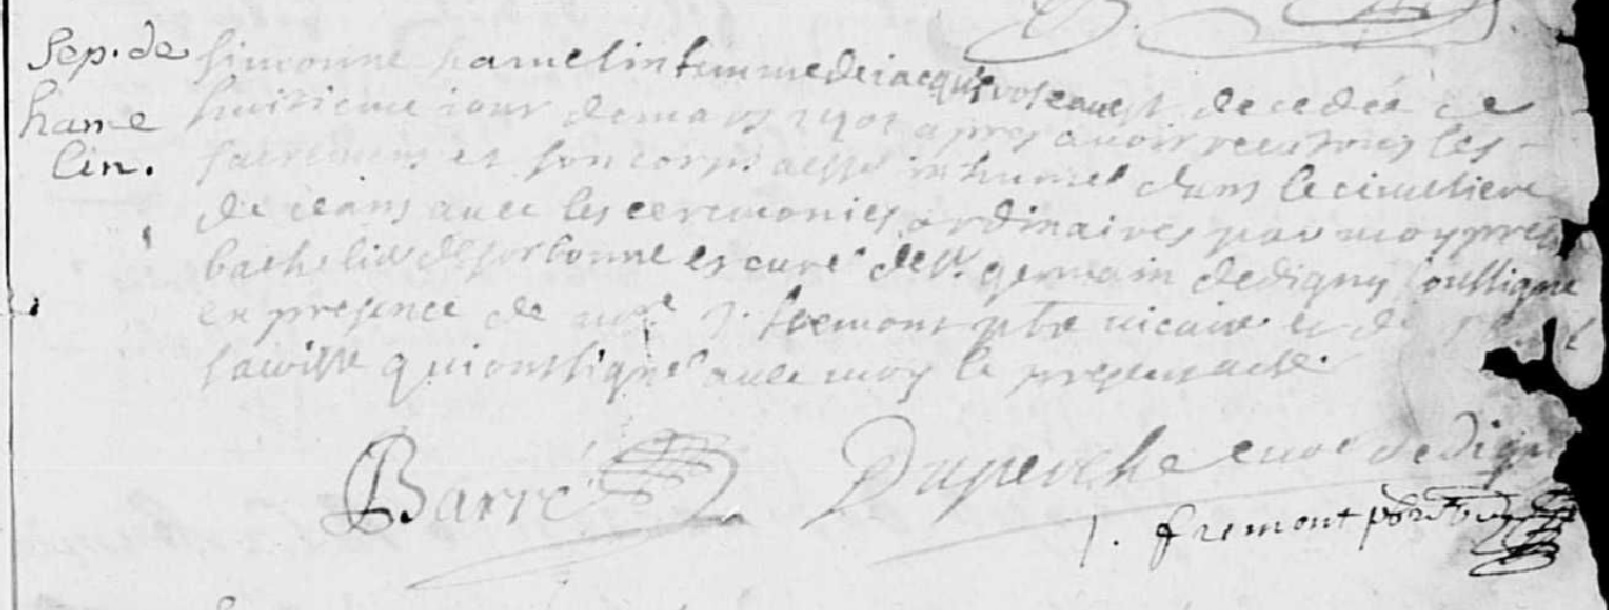 Sep. de
hame
lin.
simonne hamelin femme de iacque est decedée ce
huitieme iour de mars apres avoir receu tous les
sacremens et son corps a esté inhumé dans le cimetiere
de ceans avec les ceremonies ordinaires par moy
bachelier de sorbonne et curé de st. germain de digny soussigné
en presence de J. fremont pbre vicaire et de
qui ont signé avec moy le present acte.
Barré
Duperche curé de Digny
J. fremont pbre